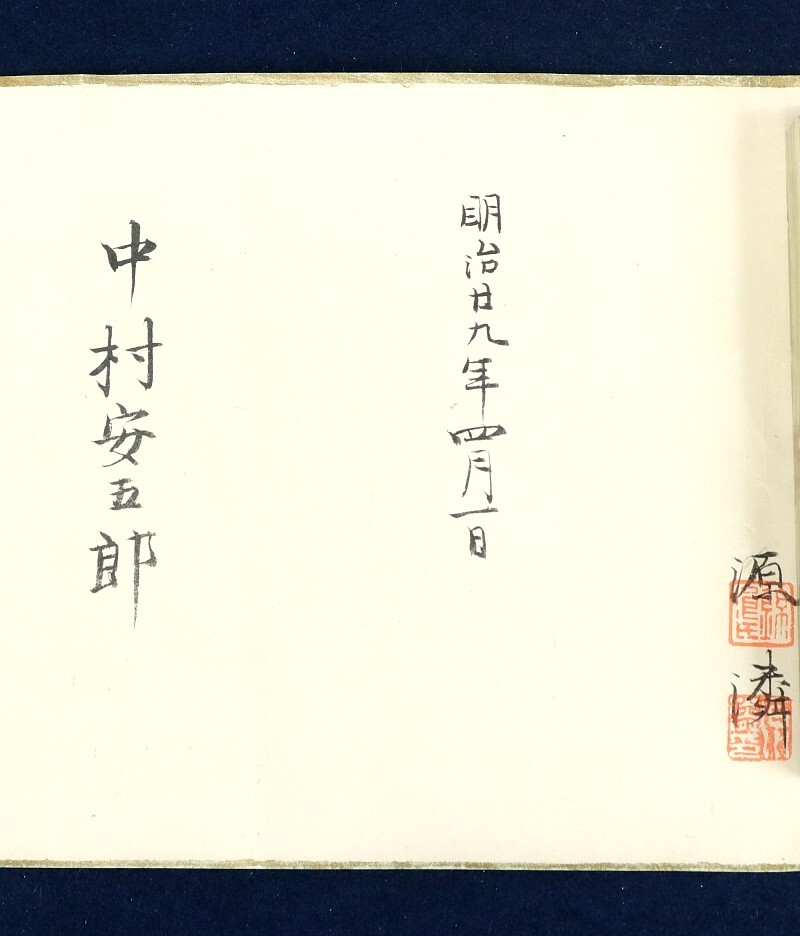 源潾
明治廿九年四月一日
中村安五郎